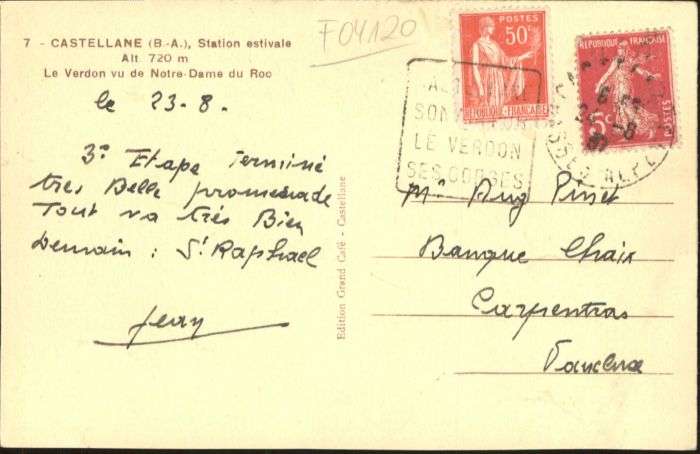 7 - CASTELLANE (B.-A.), Station estivale
Alt. 720 m
Le Verdon vu de Notre-Dame du Roc
F04120
le 23-8-
3e Etape Terminé
très Belle promenade
Tout va très Bien
Demain : St Raphael
Jean
Edition Grand Café - Castellane
POSTES
50c
REPUBLIQUE FRANÇAISE
REPUBLIQUE FRANÇAISE
5c
POSTES
SON
LE VERDON
SES GORGES
BASSES ALPES
Mr Aug
Banque Chaix
Carpentras
Vaucluse